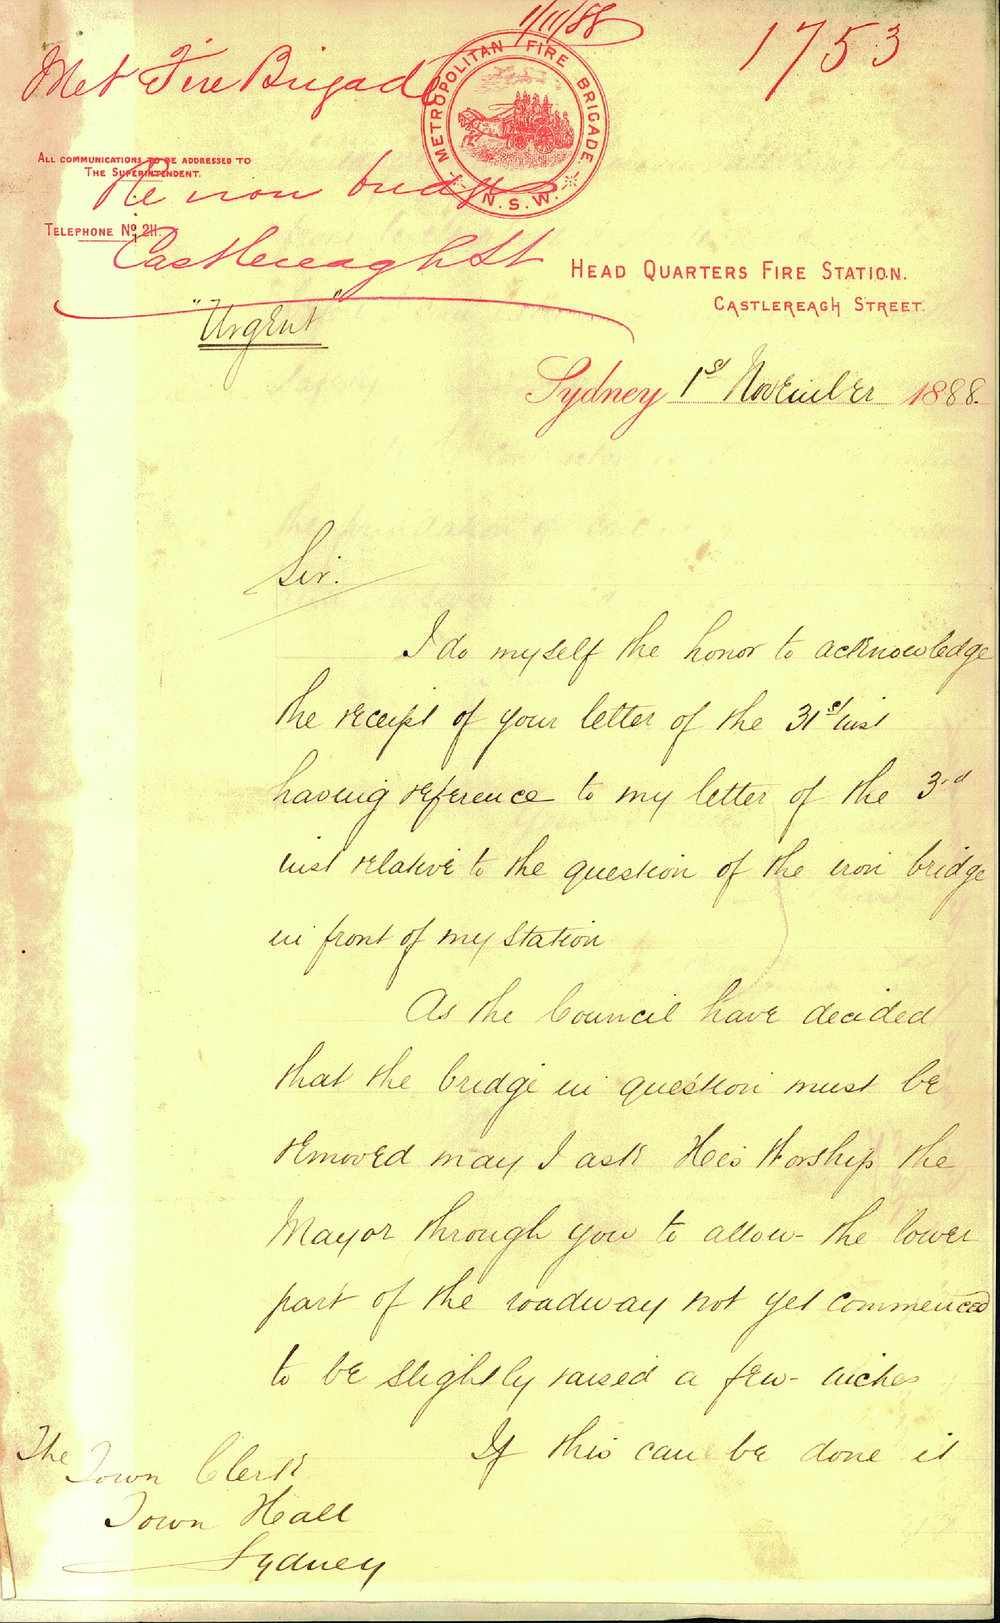 1/11/88
1753
Met Fire Brigade
METROPOLITAN FIRE BRIGADE.
N.S.W.
ALL COMMUNICATIONS TO BE ADDRESSED TO
THE SUPERINTENDENT.
Re iron bridge
TELEPHONE No. 211.
Castlereagh St
HEAD QUARTERS FIRE STATION.
CASTLEREAGH STREET.
"Urgent"
Sydney 1st November 1888.
Sir.
I do myself the honor to acknowledge
the receipt of your letter of the 31st inst
having reference to my letter of the 3rd
inst relative to the question of the iron bridge
in front of my station
As the Council have decided
that the bridge in question must be
removed may I ask His Worship the
Mayor through you to allow the lower
part of the roadway not yet commenced
to be slightly raised a few inches
If this can be done it
The Town Clerk
Town Hall
Sydney